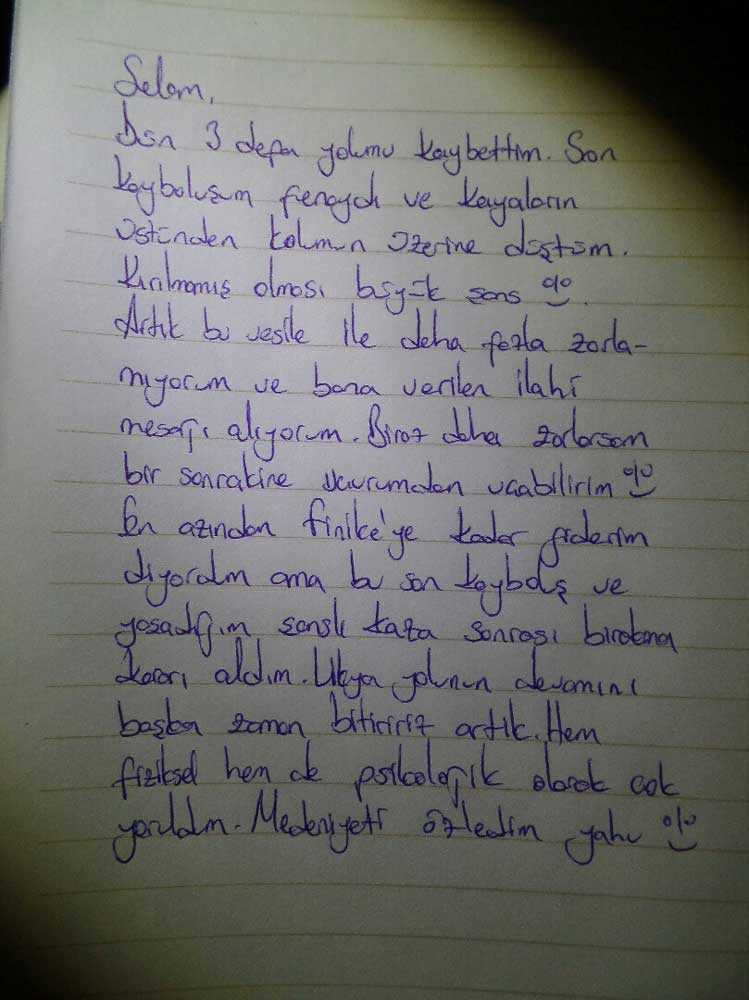 Selam,
Dün 3 defa yolumu kaybettim. Son
kayboluşum fenaydı ve kayaların
üstünden kolumun üzerine düştüm.
Kırılmamış olması büyük şans :)
Artık bu vesile ile daha fazla zorla-
mıyorum ve bana verilen ilahi
mesajı alıyorum. Biraz daha zorlarsam
bir sonrakine uçurumdan uçabilirim :)
En azından Finike'ye kadar giderim
diyordum ama bu son kayboluş ve
yaşadığım şanslı kaza sonrası bırakma
kararı aldım. Likya yolunun devamını
başka zaman bitiririz artık. Hem
fiziksel hem de psikolojik olarak çok
yoruldum. Medeniyeti özledim yahu :)